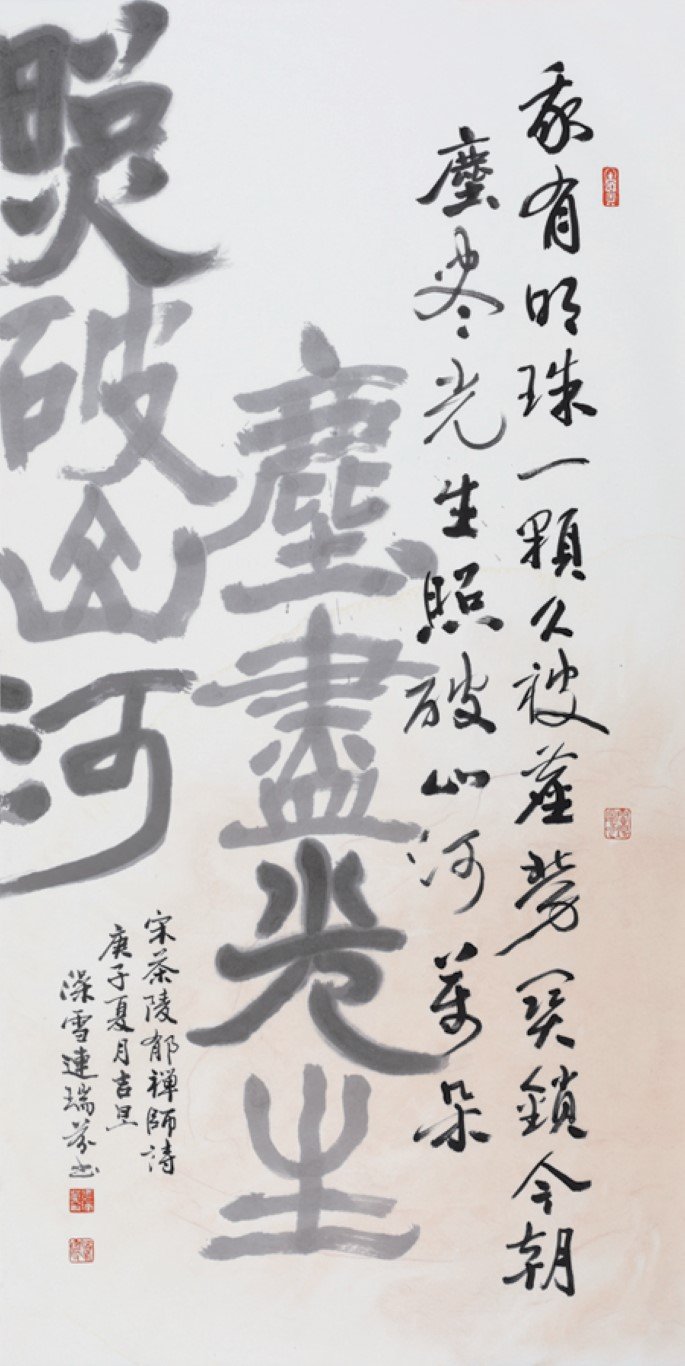 我有明珠一顆久被塵勞關鎖今朝
塵盡光生照破山河萬朵
塵盡光生
照破山河
宋茶陵郁禪師詩
庚子夏月吉旦
澡雪連瑞芬書